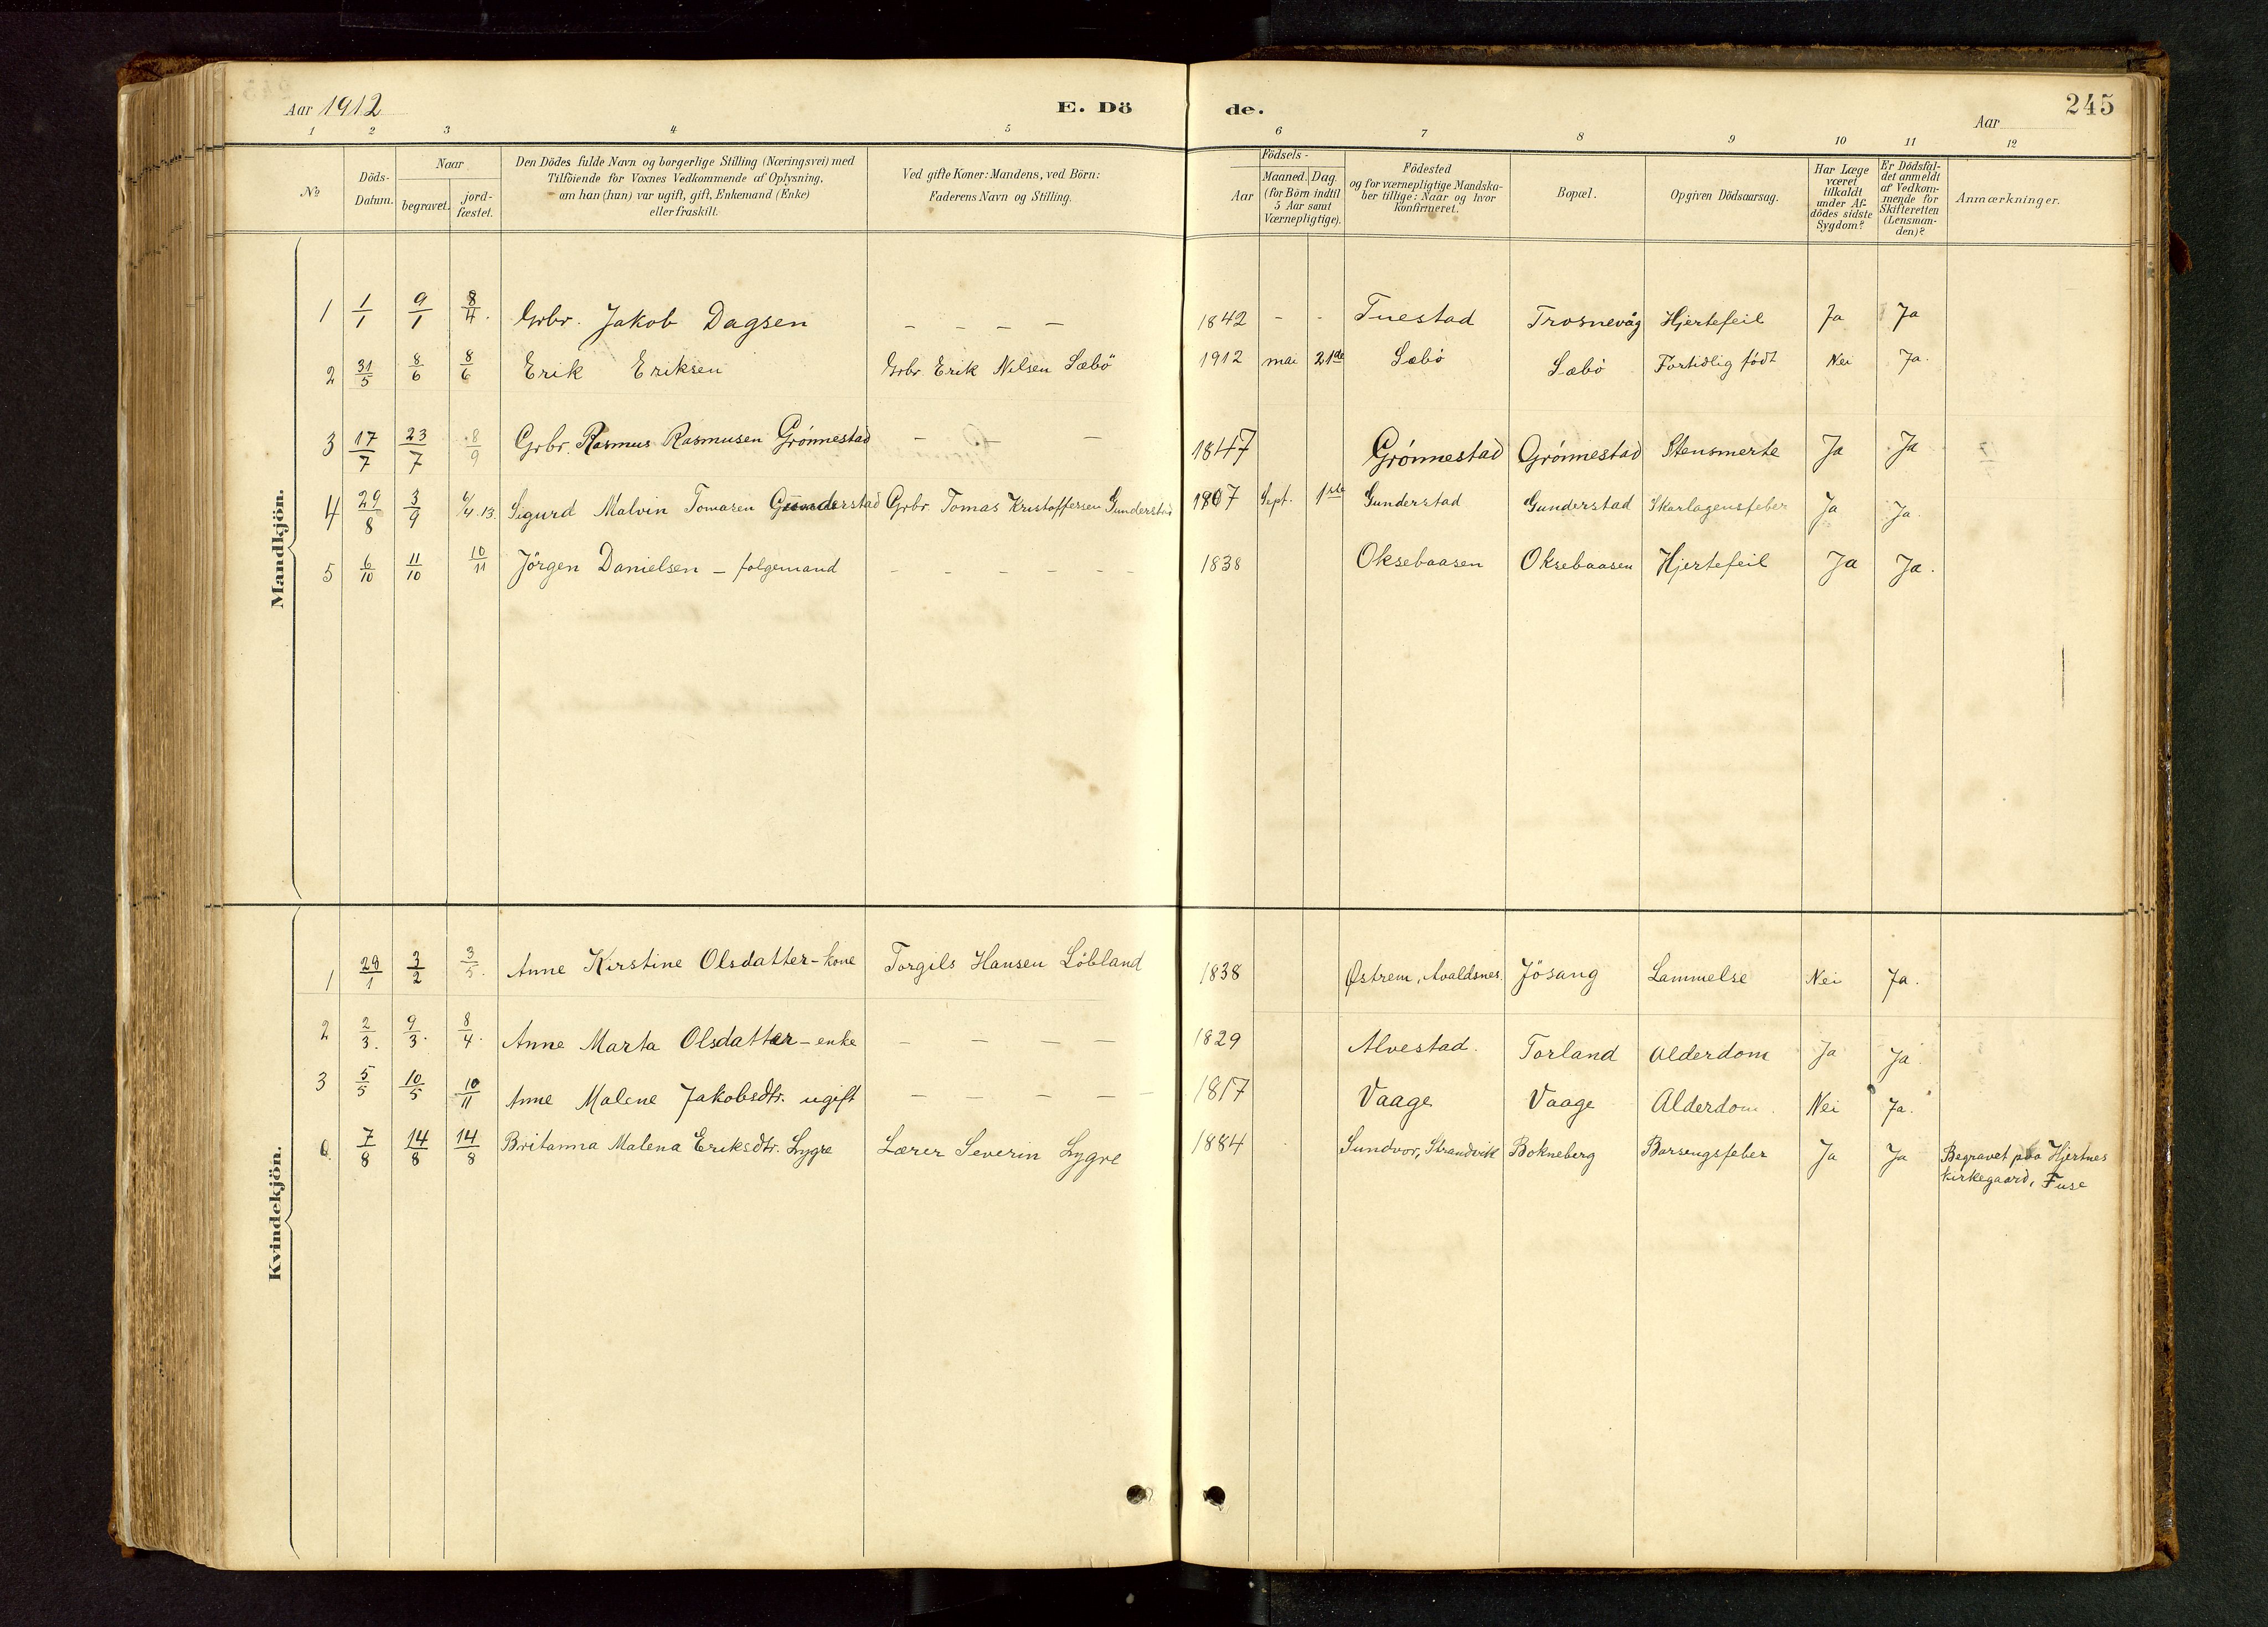 Aar 1912
E. Dö de.
Aar
245
1 2 3 4 5 6 7 8 9 10 11 12
No
Döds-Datum.
Naar
begravet.
jord-fæstet.
Den Dödes fulde Navn og borgerlige Stilling (Næringsvei) med
Tilföiende for Voxnes Vedkommende af Oplysning,
om han (hun) var ugift, gift, Enkemand (Enke)
eller fraskilt.
Ved gifte Koner: Mandens, ved Börn:
Faderens Navn og Stilling.
Födsels-
Aar
Maaned. Dag.
(for Börn indtil
5 Aar samt
Værnepligtige).
Födested
og for værnepligtige Mandska-
ber tillige: Naar og hvor
konfirmeret.
Bopæl.
Opgiven Dödsaarsag.
Har Læge
været
tilkaldt
under Af-
dödes sidste
Sygdom?
Er Dödsfal-
det anmeldt
af Vedkom-
mende for
Skifteretten
(Lensman-
den)?
Anmærkninger.
Mandkjön.
1 1/1 9/1 8/4. Grbr. Jakob Dagsen – – – – 1842 - - Tuestad Trosnevåg Hjertefeil Ja Ja
2 31/5 8/6 8/6 Erik Eriksen Grbr. Erik Nilsen Sæbö 1912 mai 21de Sæbö Sæbö Fortidlig født Nei Ja.
3 17/7 23/7 8/9 Grbr. Rasmus Rasmusen Grönnestad – – – 1847 Grönnestad Grönnestad Stensmerte Ja Ja
4 29/8 3/9 6/4.13. Sigurd Malvin Tomasen Gunderstad Grbr. Tomas Kristoffersen Gunderstad 1907 Sept. 1ste Gunderstad Gunderstad Skarlagensfeber Ja Ja.
5 6/10 11/10 10/11 Jörgen Danielsen – folgemand – – – – – – 1838 Oksebaasen Oksebaasen Hjertefeil Ja Ja.
Kvindekjön.
1 29/1 3/2 3/5. Anne Kirstine Olsdatter – kone Torgils Hansen Löbland 1838 Østrem, Avaldsnes. Jösang Lammelse Nei Ja.
2 2/3. 9/3. 8/4. Anne Marta Olsdatter – enke – – – – 1829 Alvestad. Torland Alderdom Ja Ja.
3 5/5 10/5 10/11 Anne Malene Jakobsdtr. ugift – – – – – 1817 Vaage Vaage Alderdom. Nei Ja.
7/8 14/8 14/8 Britanna Malena Eriksdtr. Lygre Lærer Severin Lygre 1884 Sundvor, Strandvik Bokneberg Barsengsfeber Ja Ja Begravet paa Hjertnes
kirkegaard, Fuse